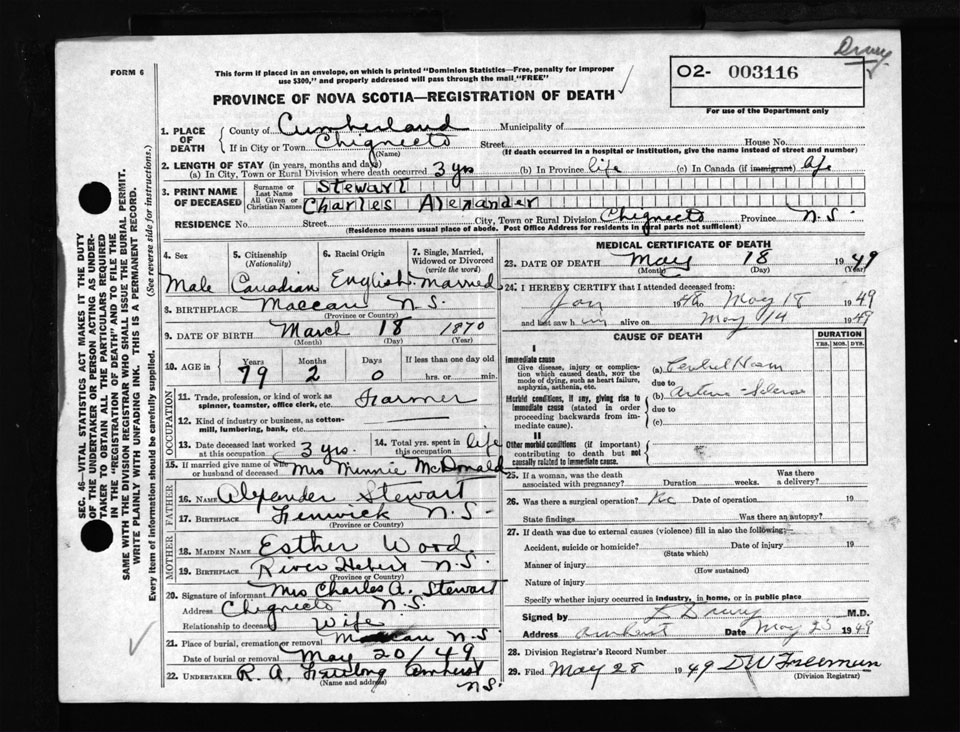 Drury
FORM 6
This form if placed in an envelope, on which is printed "Dominion Statistics—Free, penalty for improper
use $300," and properly addressed will pass through the mail "FREE"
02- 003116
For use of the Department only
PROVINCE OF NOVA SCOTIA—REGISTRATION OF DEATH
1. PLACE OF DEATH
County of Cumberland Municipality of
If in City or Town Chignecto Street House No.
(Name) (If death occurred in a hospital or institution, give the name instead of street and number)
2. LENGTH OF STAY (in years, months and days)
(a) In City, Town or Rural Division where death occurred 3 yrs (b) In Province life (c) In Canada (if immigrant) life
3. PRINT NAME OF DECEASED
Surname or Last Name Stewart
All Given or Christian Names Charles Alexander
RESIDENCE No. Street City, Town or Rural Division Chignecto Province N.S.
(Residence means usual place of abode. Post Office Address for Residents in rural parts not sufficient)
4. Sex 5. Citizenship (Nationality) 6. Racial Origin 7. Single, Married, Widowed or Divorced (write the word)
Male Canadian English Married
8. BIRTHPLACE Maccan N.S.
(Province or Country)
9. DATE OF BIRTH March 18 1870
(Month) (Day) (Year)
10. AGE in Years Months Days If less than one day old
79 2 0 hrs. or min.
OCCUPATION
11. Trade, profession, or kind of work as spinner, teamster, office clerk, etc. Farmer
12. Kind of industry or business, as cotton-mill, lumbering, bank, etc.
13. Date deceased last worked at this occupation 3 yrs. 14. Total yrs. spent in this occupation life
15. If married give name of wife or husband of deceased Mrs Minnie McDonald
FATHER
16. NAME Alexander Stewart
17. BIRTHPLACE Fenwick N.S.
(Province or Country)
MOTHER
18. MAIDEN NAME Esther Wood
19. BIRTHPLACE River Hebert N.S.
(Province or Country)
20. Signature of informant Mrs Charles A. Stewart
Address Chignecto N.S.
Relationship to deceased Wife
21. Place of burial, cremation or removal Maccan N.S.
Date of burial or removal May 20/49
22. UNDERTAKER R. A. Furlong Amherst N.S.
(Name and address)
MEDICAL CERTIFICATE OF DEATH
23. DATE OF DEATH May 18 1949
(Month) (Day) (Year)
24. I HEREBY CERTIFY that I attended deceased from:
Jan 1948 to May 18 1949
and last saw him alive on May 14 1949
CAUSE OF DEATH DURATION
YRS. MOS. DYS.
I
Immediate cause
Give disease, injury or complication which caused death, NOT the mode of dying, such as heart failure, asphyxia, asthenia, etc.
(a)
due to
Morbid conditions, if any, giving rise to immediate cause (stated in order proceeding backwards from immediate cause).
(b)
due to
(c)
II
Other morbid conditions (if important) contributing to death but not causally related to immediate cause.
25. If a woman, was the death associated with pregnancy? Duration weeks. Was there a delivery?
26. Was there a surgical operation? Date of operation 19
State findings Was there an autopsy?
27. If death was due to external causes (violence) fill in also the following:—
Accident, suicide or homicide? Date of injury 19
(State which)
Manner of injury
(How sustained)
Nature of injury
Specify whether injury occurred in industry, in home, or in public place
Signed by Drury M.D.
Address Amherst Date May 25 1949
28. Division Registrar's Record Number
29. Filed May 28 1949 D W Freeman
(Division Registrar)
SEC. 46—VITAL STATISTICS ACT MAKES IT THE DUTY
OF THE UNDERTAKER OR PERSON ACTING AS UNDER-
TAKER TO OBTAIN ALL THE PARTICULARS REQUIRED
IN THE "REGISTRATION OF DEATH" AND TO FILE THE
SAME WITH THE DIVISION REGISTRAR WHO SHALL ISSUE THE BURIAL PERMIT.
WRITE PLAINLY WITH UNFADING INK. THIS IS A PERMANENT RECORD.
Every item of information should be carefully supplied. (See reverse side for instructions.)